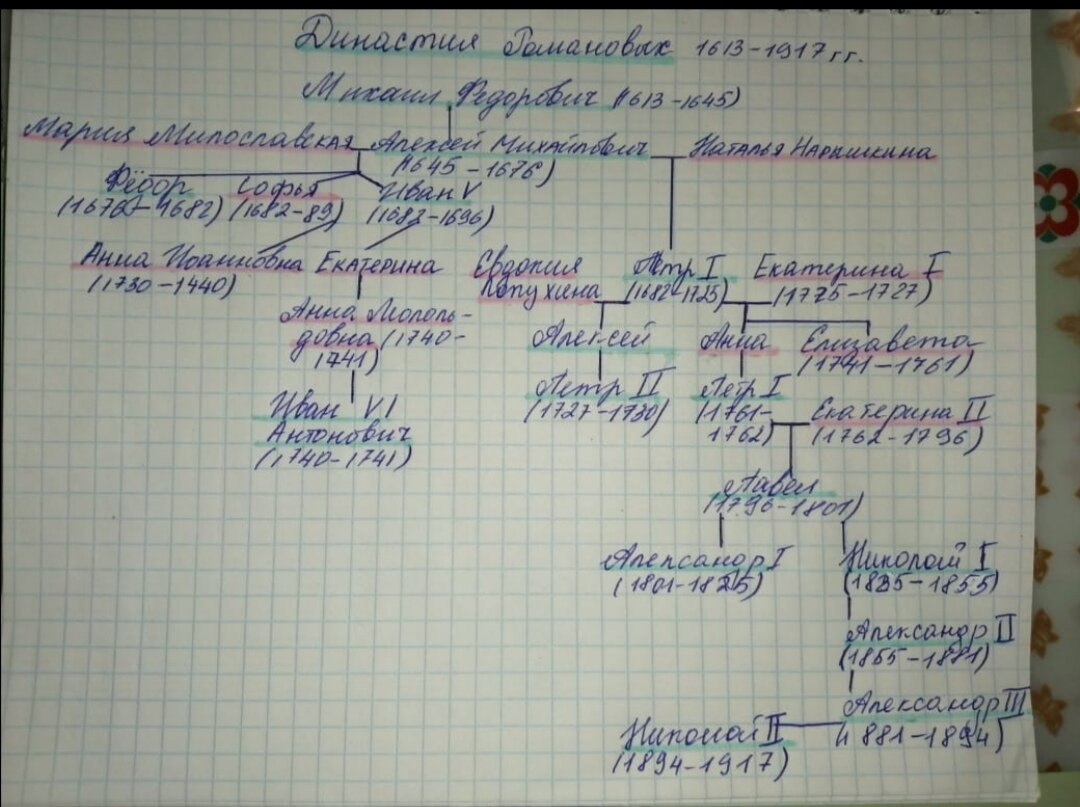 Династия Романовых 1613-1917 гг.
Михаил Федорович (1613-1645)
Мария Милославская Алексей Михайлович Наталья Нарышкина
(1645-1676)
Фёдор Софья Иван V
(1676-1682) (1682-89) (1682-1696)
Анна Иоанновна Екатерина Евдокия Пётр I Екатерина I
(1730-1440) Лопухина (1682-1725) (1725-1727)
Анна Леополь-
довна (1740-
1741)
Алексей Анна Елизавета
(1741-1761)
Петр II Петр I
(1727-1730) (1761-
1762)
Екатерина II
(1762-1796)
Иван VI
Антонович
(1740-1741)
Павел
(1796-1801)
Александр I Николай I
(1801-1825) (1825-1855)
Александр II
(1855-1881)
Александр III
Николай II (1881-1894)
(1894-1917)